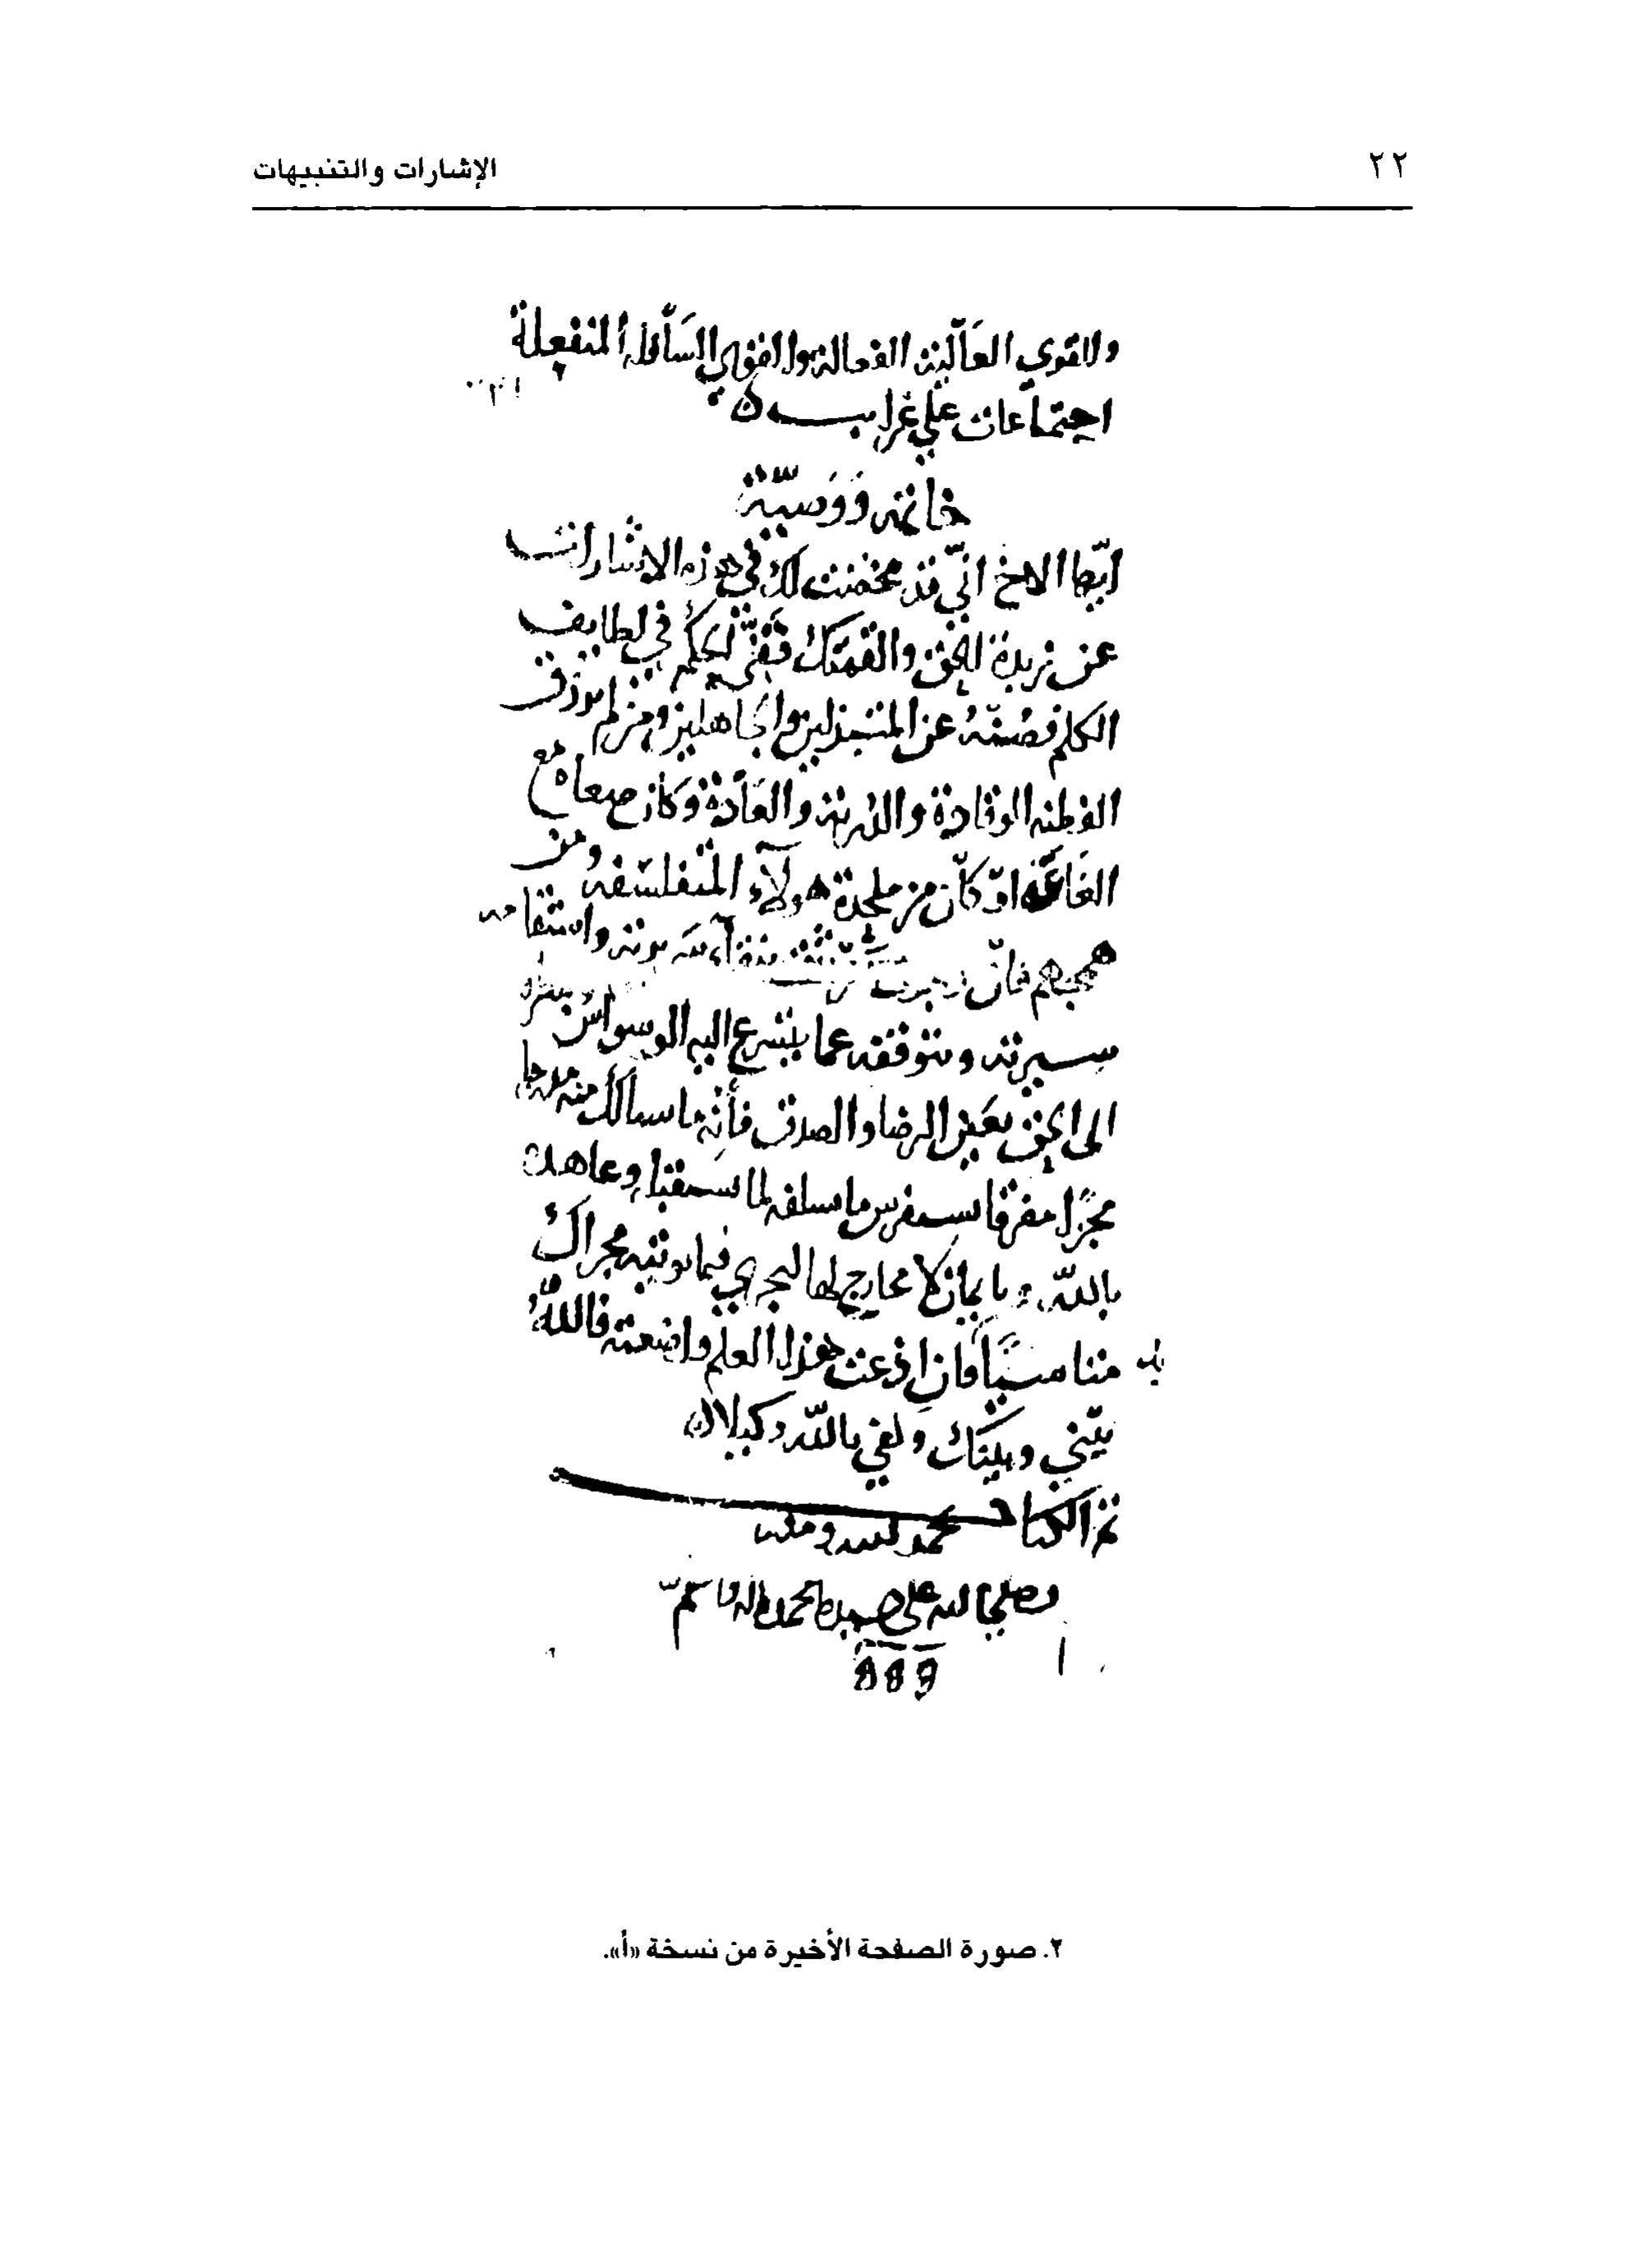 ٢٢
الإشارات والتنبيهات
وللقوي العالية الفعالة والقوي السافلة المنفعلة
اجتماعات علي غرايب
خاتمة ووصية
ايها الاخ اني قد مخضت لك في هذه الاشارات
عن زبدة الحق والقمتك قفي الحكم في لطايف
الكلم فصنه عن المبتذلين والجاهلين ومن لم يرزق
الفطنة الوقادة والدربة والعادة وكان صغاه مع
الغاغة او كان من ملحدة هولآء المتفلسفة ومن
همجهم فان وجدت من تثق بنقآء سريرته واستقامة
سيرته وبتوقفه عما يتسرع اليه الوسواس
الى الحق بعين الرضا والصدق فآته ما سالك منه
مجزا مفرقا تستفرس مما تسلفه لما تستقبله وعاهده
بالله وبايمان لا مخارج لها ليجري فيما توتيه مجراك
متاسيا فان اذعت هذا العلم واضعته فالله
بيني وبينك وكفي بالله وكيلا
تم الكتاب بحمد الله ومنه
وصلي الله على محمد واله وسلم
٢. صورة الصفحة الأخيرة من نسخة «أ».